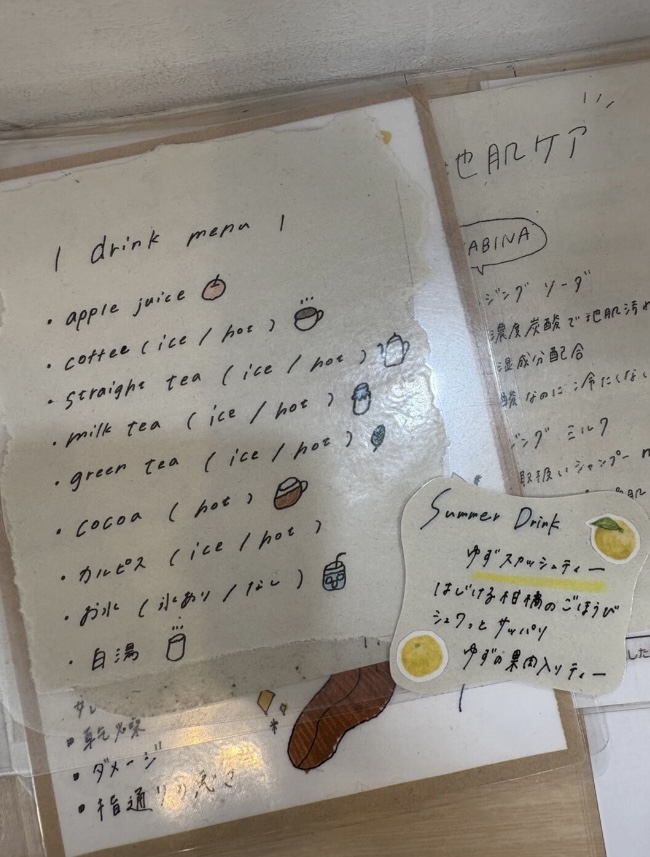 drink menu
・apple juice
・coffee (ice / hot)
・straight tea (ice / hot)
・milk tea (ice / hot)
・green tea (ice / hot)
・cocoa (hot)
・カルピス (ice / hot)
・お水 (氷あり / なし)
・白湯
・ダメージ
・指通り
地肌ケア
ABINA
ジング ソーダ
濃度炭酸で地肌汚れ
湿成分配合
酸なのに冷たくない
ジング ミルク
取扱いシャンプー
Summer Drink
ゆずスカッシュティー
はじける柑橘のごほうび
シュワっとサッパリ
ゆずの果肉入りティー
した